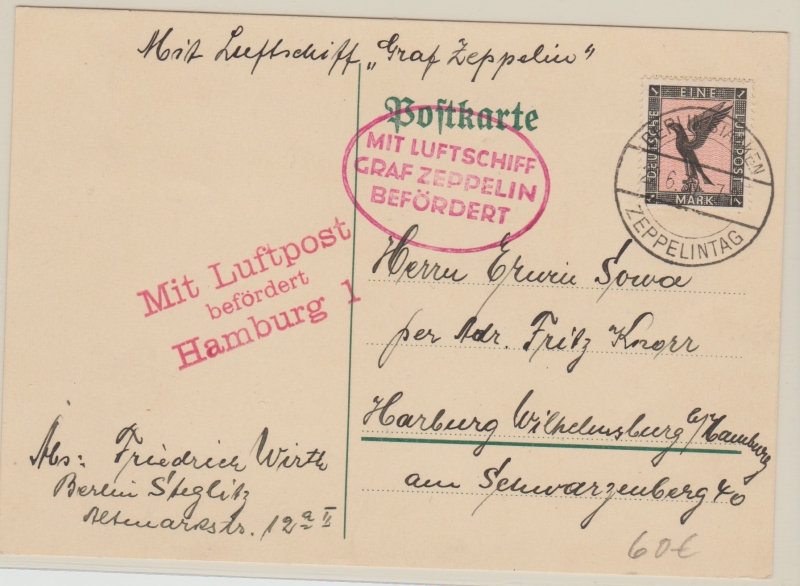 Mit Luftschiff „Graf Zeppelin“
Postkarte
EINE
DEUTSCHE
LUFTPOST
1 MARK 1
BERLIN STAAKEN
ZEPPELINTAG
MIT LUFTSCHIFF
GRAF ZEPPELIN
BEFÖRDERT
Mit Luftpost
befördert
Hamburg 1
Herrn Erwin Sowa
per Adr. Fritz Knorr
Harburg Wilhelmsburg b/Hamburg
am Schwarzenberg 40
Abs: Friedrich Wirth
Berlin Steglitz
Altmarkstr. 12 a II
60€